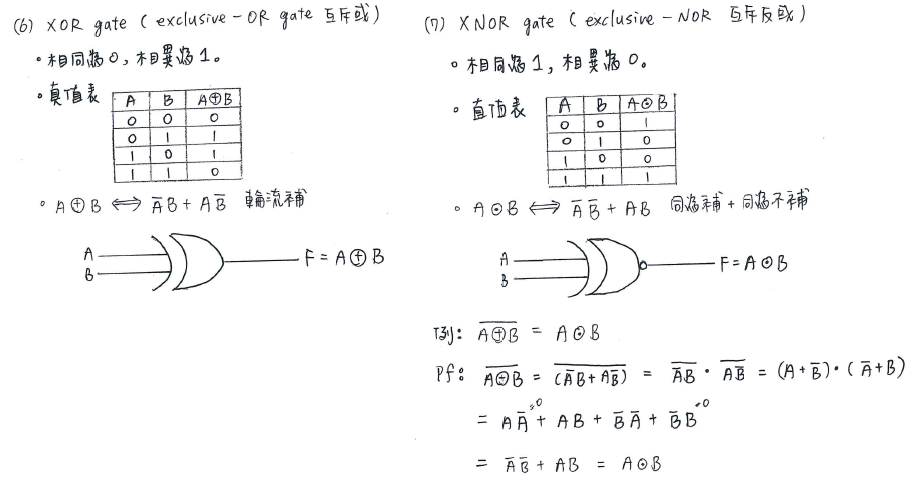 (6) XOR gate (exclusive-OR gate 互斥或)
• 相同為0,相異為1。
• 真值表
A B A⊕B
0 0 0
0 1 1
1 0 1
1 1 0
• A⊕B ⟺ A̅B + AB̅ 輪流補
A
B
F = A⊕B
(7) XNOR gate (exclusive-NOR 互斥反或)
• 相同為1,相異為0。
• 真值表
A B A⊙B
0 0 1
0 1 0
1 0 0
1 1 1
• A⊙B ⟺ A̅B̅ + AB 同為補+同為不補
A
B
F = A⊙B
例: \overline{A⊕B} = A⊙B
Pf: \overline{A⊕B} = \overline{(A̅B + AB̅)} = \overline{A̅B} · \overline{AB̅} = (A+B̅)·(A̅+B)
= AA̅^{=0} + AB + B̅A̅ + B̅B^{=0}
= A̅B̅ + AB = A⊙B